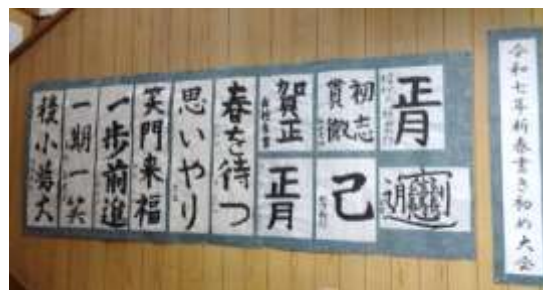 令和七年新春書き初め大会
正月
初志
貫徹
己
賀正
正月
春を待つ
思いやり
笑門来福
一歩前進
一期一笑
積小為大